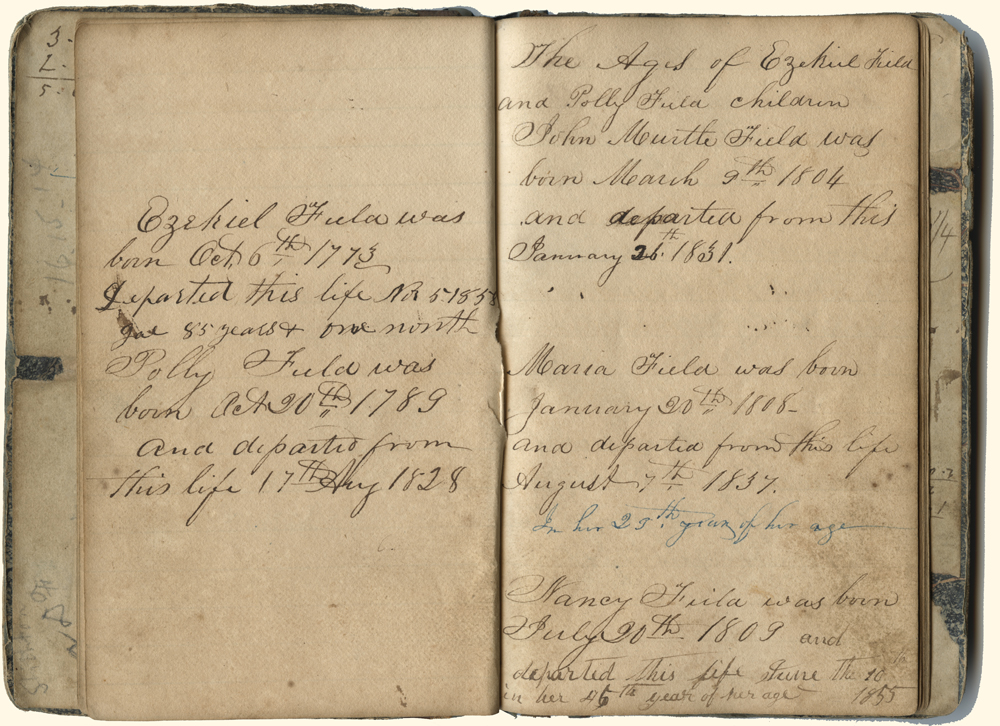 3.
2.
5.
Ezekiel Field was
born Oct 6th 1773
departed this life Nov 5 1858
85 years & one month
Polly Field was
born Oct 20th 1789
and departed from
this life 17th Aug 1828
The Ages of Ezekiel Field
and Polly Field children
John Murtle Field was
born March 9th 1804
and departed from this
January 26th 1831.
Maria Field was born
January 20th 1808-
and departed from this life
August 7th 1837.
In her 29th year of her age
Nancy Field was born
July 20th 1809 and
departed this life June the 10th
in her 46th year of her age 1855
1/4